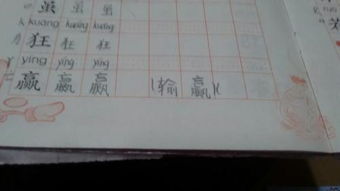 虽 虽 虽
kuáng kuáng kuáng
狂 狂 狂
yíng yíng yíng
赢 赢 赢 (输 赢)